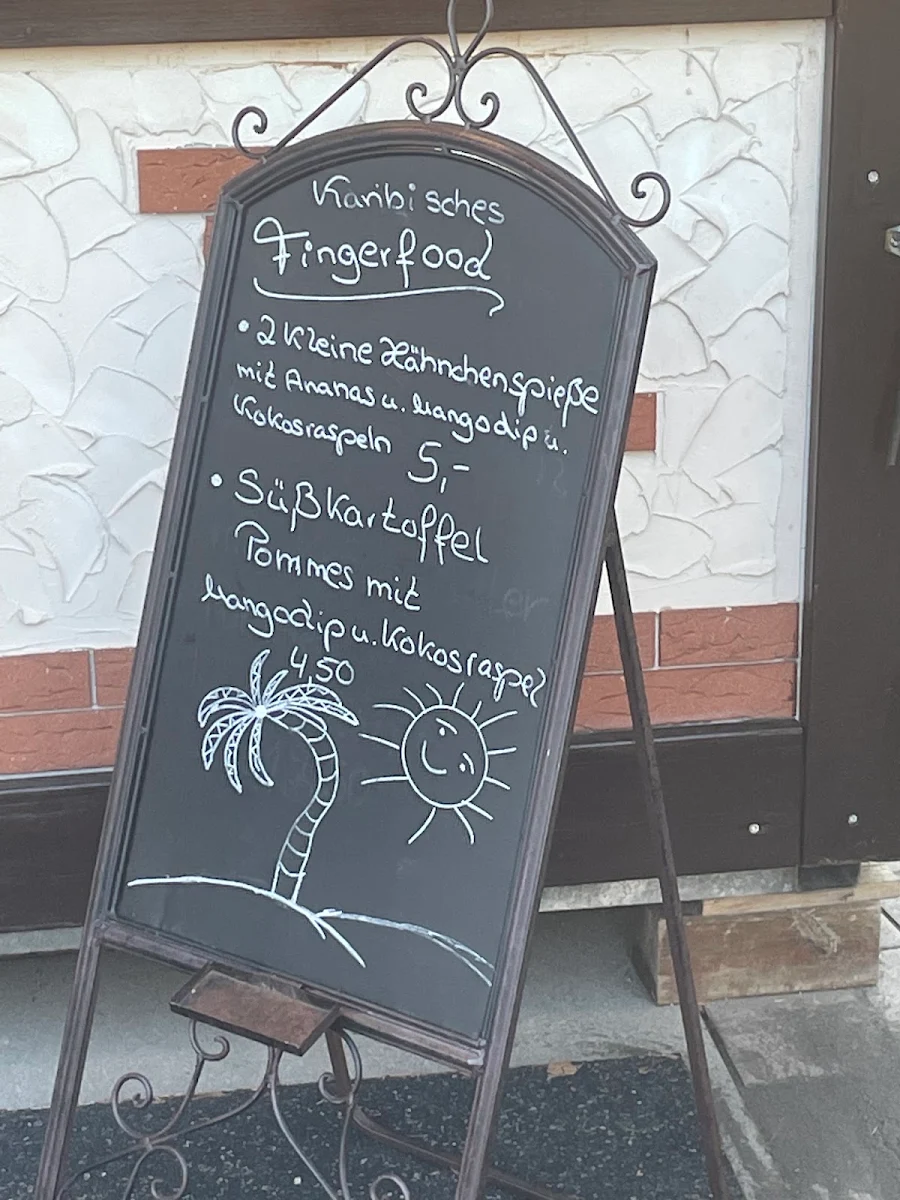 Karibisches
Fingerfood
• 2 Kleine Hähnchenspieße
mit Ananas u. Mangodip u.
Kokosraspeln 5,-
• Süßkartoffel
Pommes mit
Mangodip u. Kokosraspel
4,50